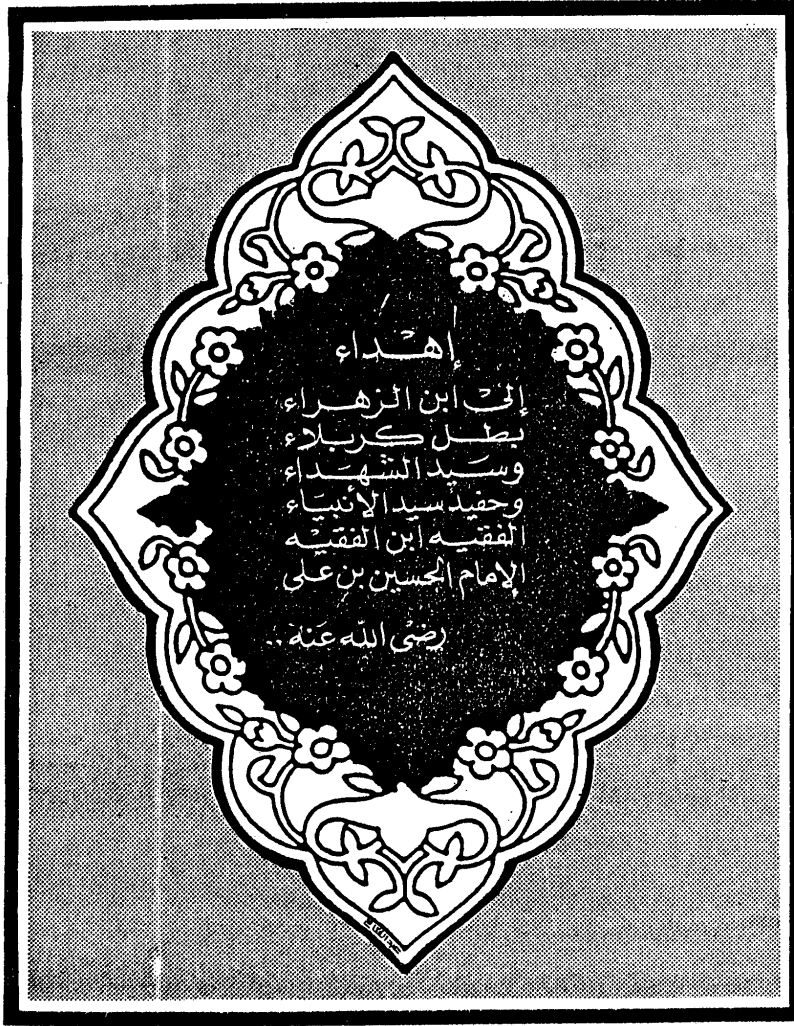 إهداء
إلى ابن الزهراء
بطل كربلاء
وسيد الشهداء
وحفيد سيد الأنبياء
الفقيه ابن الفقيه
الإمام الحسين بن على
رضى الله عنه..